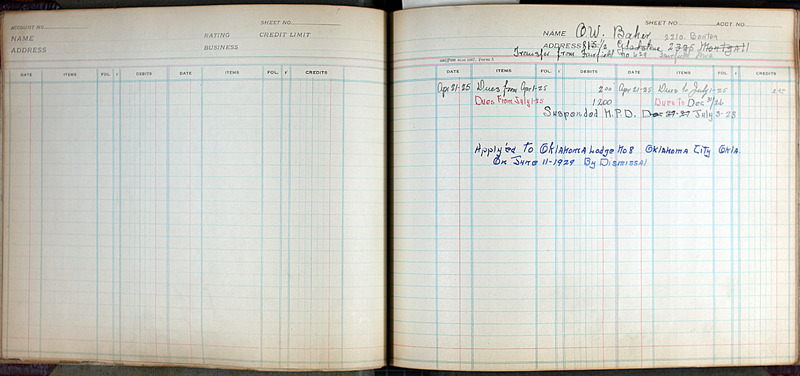 SHEET NO.
ACCOUNT NO.
NAME RATING CREDIT LIMIT
ADDRESS BUSINESS
DATE ITEMS FOL. DEBITS DATE ITEMS FOL. CREDITS
SHEET NO. ACCT NO.
NAME O.W. Baker 2210. Benton
ADDRESS 815 1/2 Gladstone
Transfer from Fairfield No 628
DATE ITEMS FOL. DEBITS DATE ITEMS FOL. CREDITS
Apr 21-25 Dues from Apr 1-25 2 00 Apr 21-25 Dues to July 1-25
Dues From July 1-25 12 00 Dues To Dec 31/26
Suspended N.P.D. Dec 27-27 July 3-28
Apply'ed To Oklahoma Lodge No 8 Oklahoma City Okla.
On June 11-1929 By Dismissal